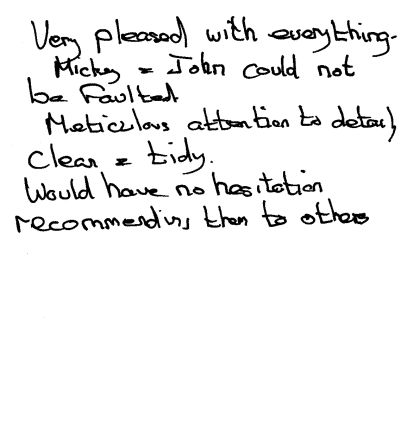 Very pleased with everything.
Mickey & John could not
be faulted
Meticulous attention to detail,
clean & tidy.
Would have no hesitation
recommending them to others